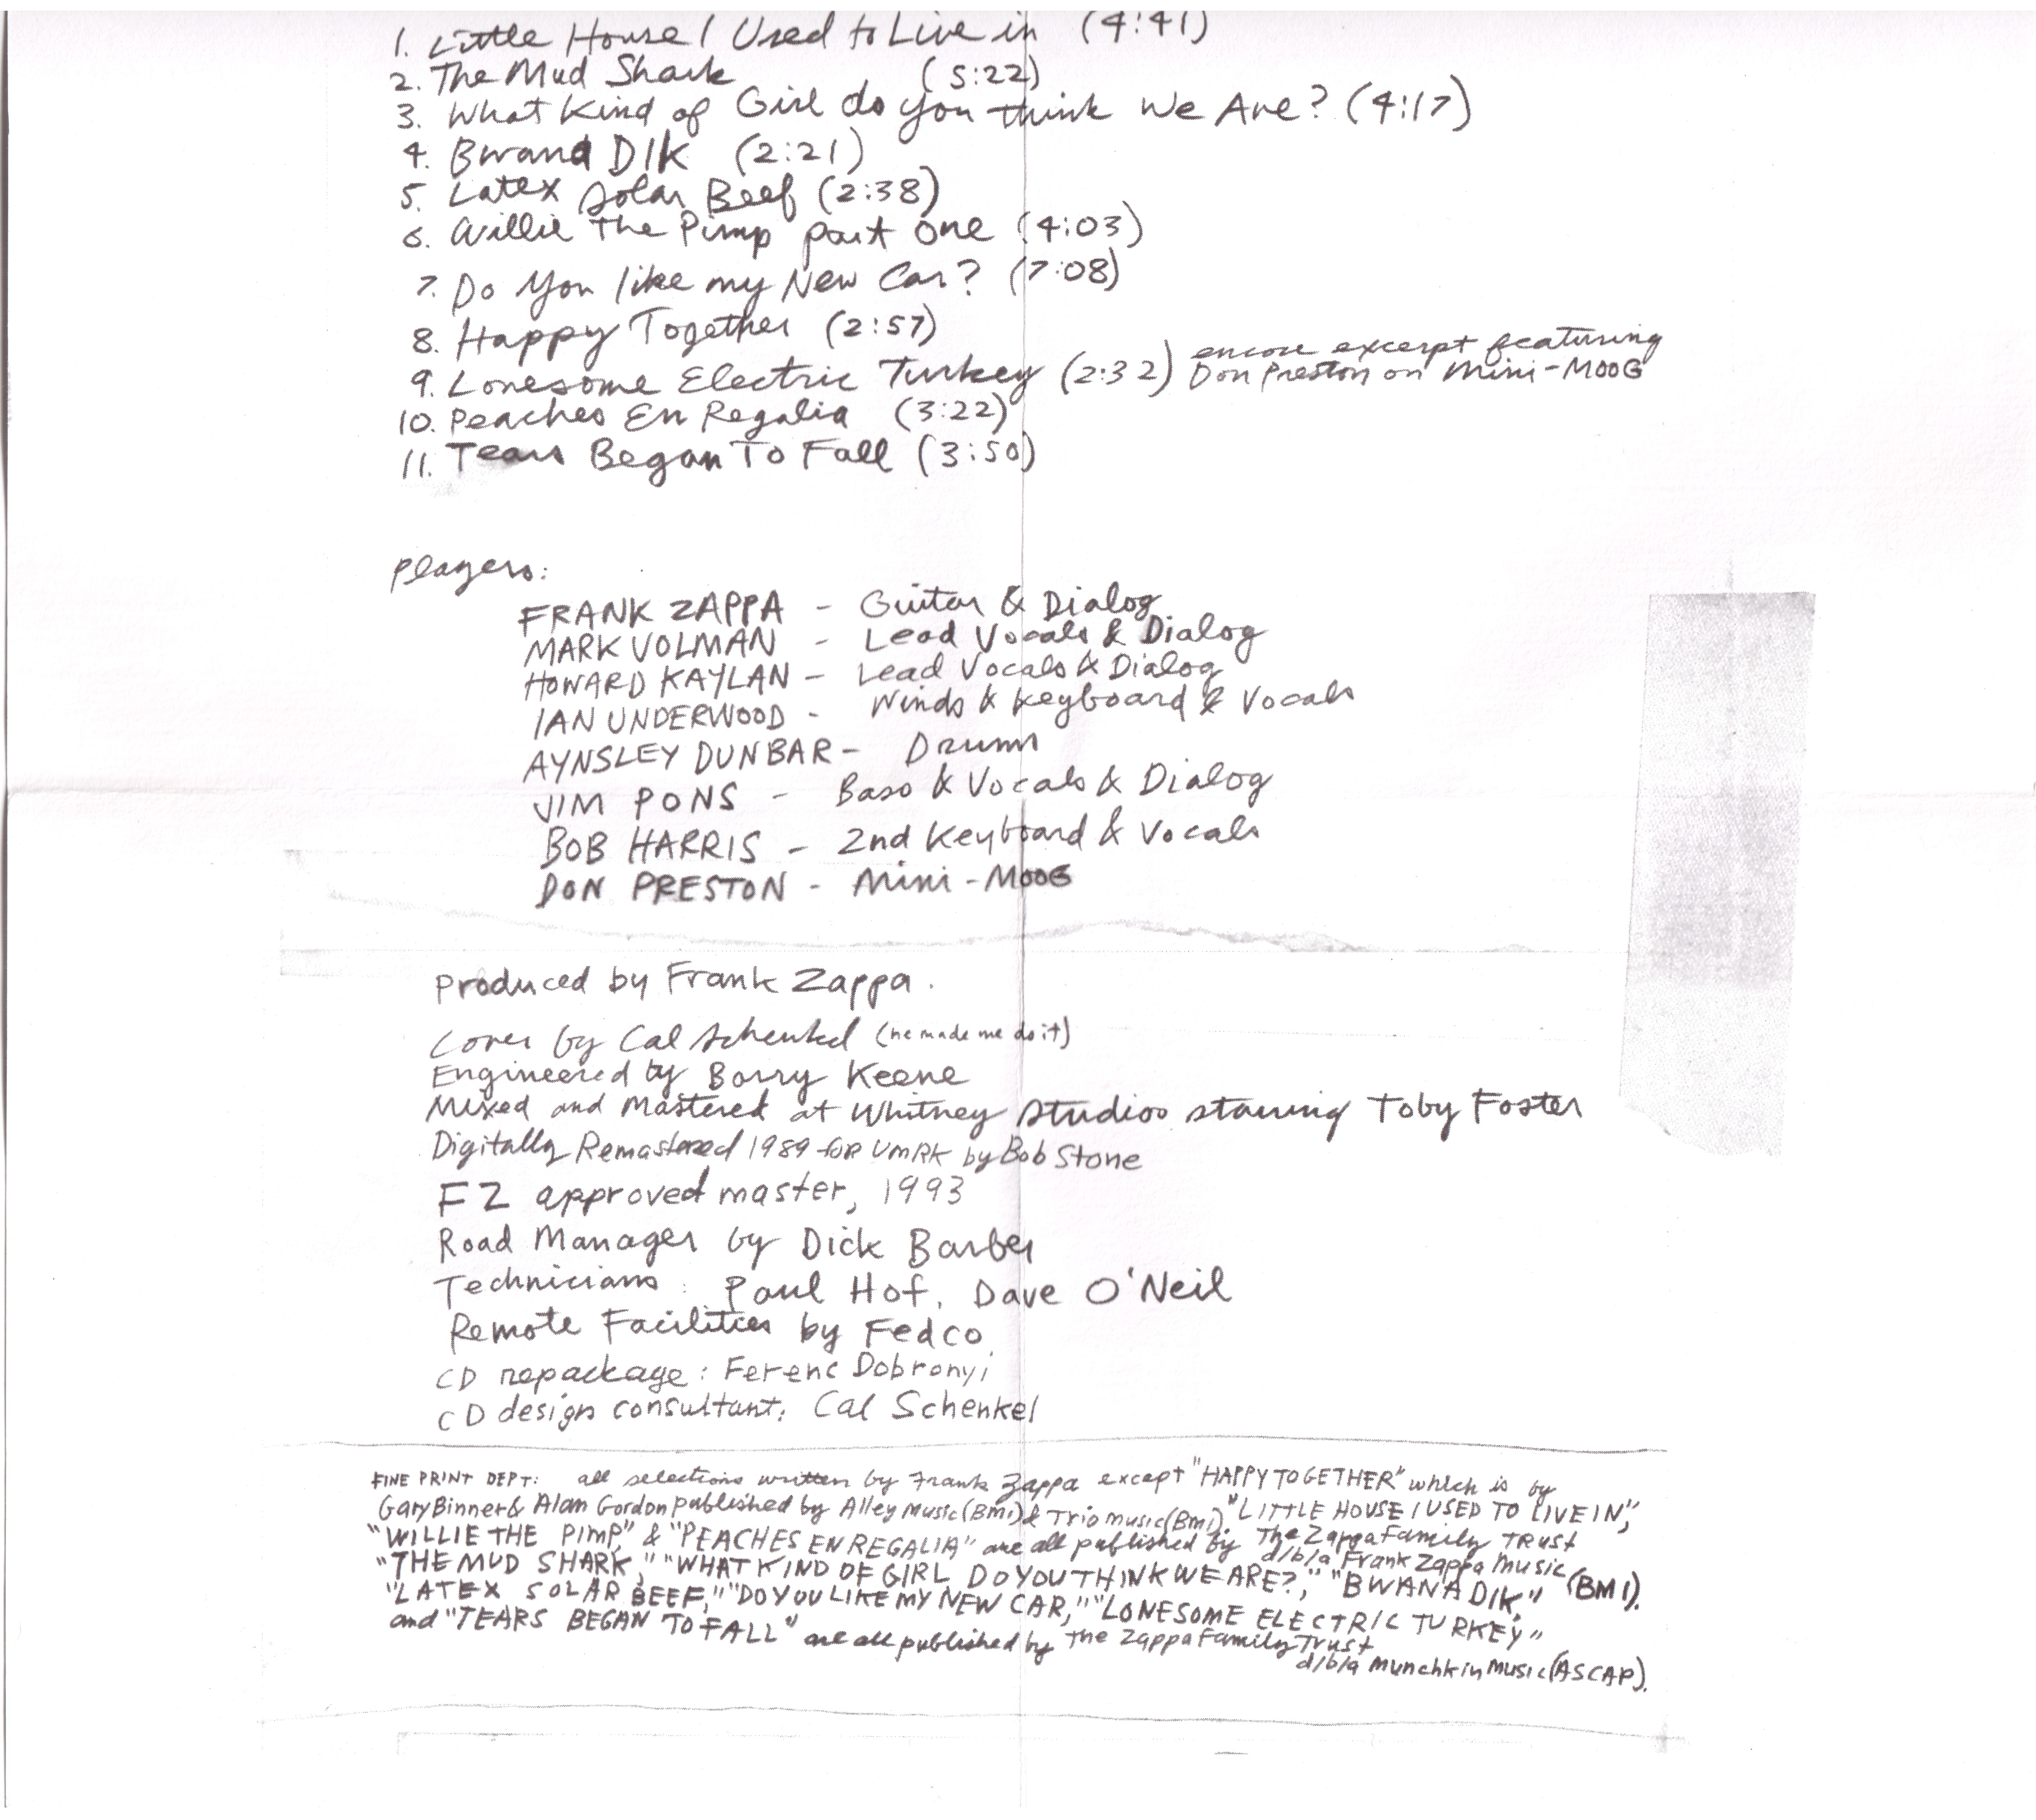 1. Little House I Used to Live in (4:41)
2. The Mud Shark (5:22)
3. What Kind of Girl do you think We Are? (4:17)
4. Bwana DIK (2:21)
5. Latex Solar Beef (2:38)
6. Willie The Pimp part one (4:03)
7. Do You like my New Car? (7:08)
8. Happy Together (2:57)
9. Lonesome Electric Turkey (2:32) encore excerpt featuring
Don Preston on Mini-MOOG
10. Peaches En Regalia (3:22)
11. Tears Began To Fall (3:50)
players:
FRANK ZAPPA - Guitar & Dialog
MARK VOLMAN - Lead Vocals & Dialog
HOWARD KAYLAN - Lead Vocals & Dialog
IAN UNDERWOOD - Winds & Keyboard & Vocals
AYNSLEY DUNBAR - Drums
JIM PONS - Bass & Vocals & Dialog
BOB HARRIS - 2nd Keyboard & Vocals
DON PRESTON - Mini-MOOG
Produced by Frank Zappa.
Cover by Cal Schenkel (he made me do it)
Engineered by Barry Keene
Mixed and Mastered at Whitney Studios starring Toby Foster
Digitally Remastered 1989 FOR UMRK by Bob Stone
FZ approved master, 1993
Road Manager by Dick Barber
Technicians: Paul Hof, Dave O'Neil
Remote Facilities by Fedco
CD repackage: Ferenc Dobronyi
CD design consultant: Cal Schenkel
FINE PRINT DEPT: all selections written by Frank Zappa except "HAPPY TOGETHER" which is by
Gary Binner & Alan Gordon published by Alley Music (BMI) & Trio music (BMI). "LITTLE HOUSE I USED TO LIVE IN,"
"WILLIE THE PIMP," & "PEACHES EN REGALIA" are all published by The Zappa Family TRUST
d/b/a Frank Zappa Music (BMI).
"THE MUD SHARK," "WHAT KIND OF GIRL DO YOU THINK WE ARE?," "BWANA DIK,"
"LATEX SOLAR BEEF," "DO YOU LIKE MY NEW CAR," "LONESOME ELECTRIC TURKEY"
and "TEARS BEGAN TO FALL" are all published by The Zappa Family Trust
d/b/a Munchkin Music (ASCAP).